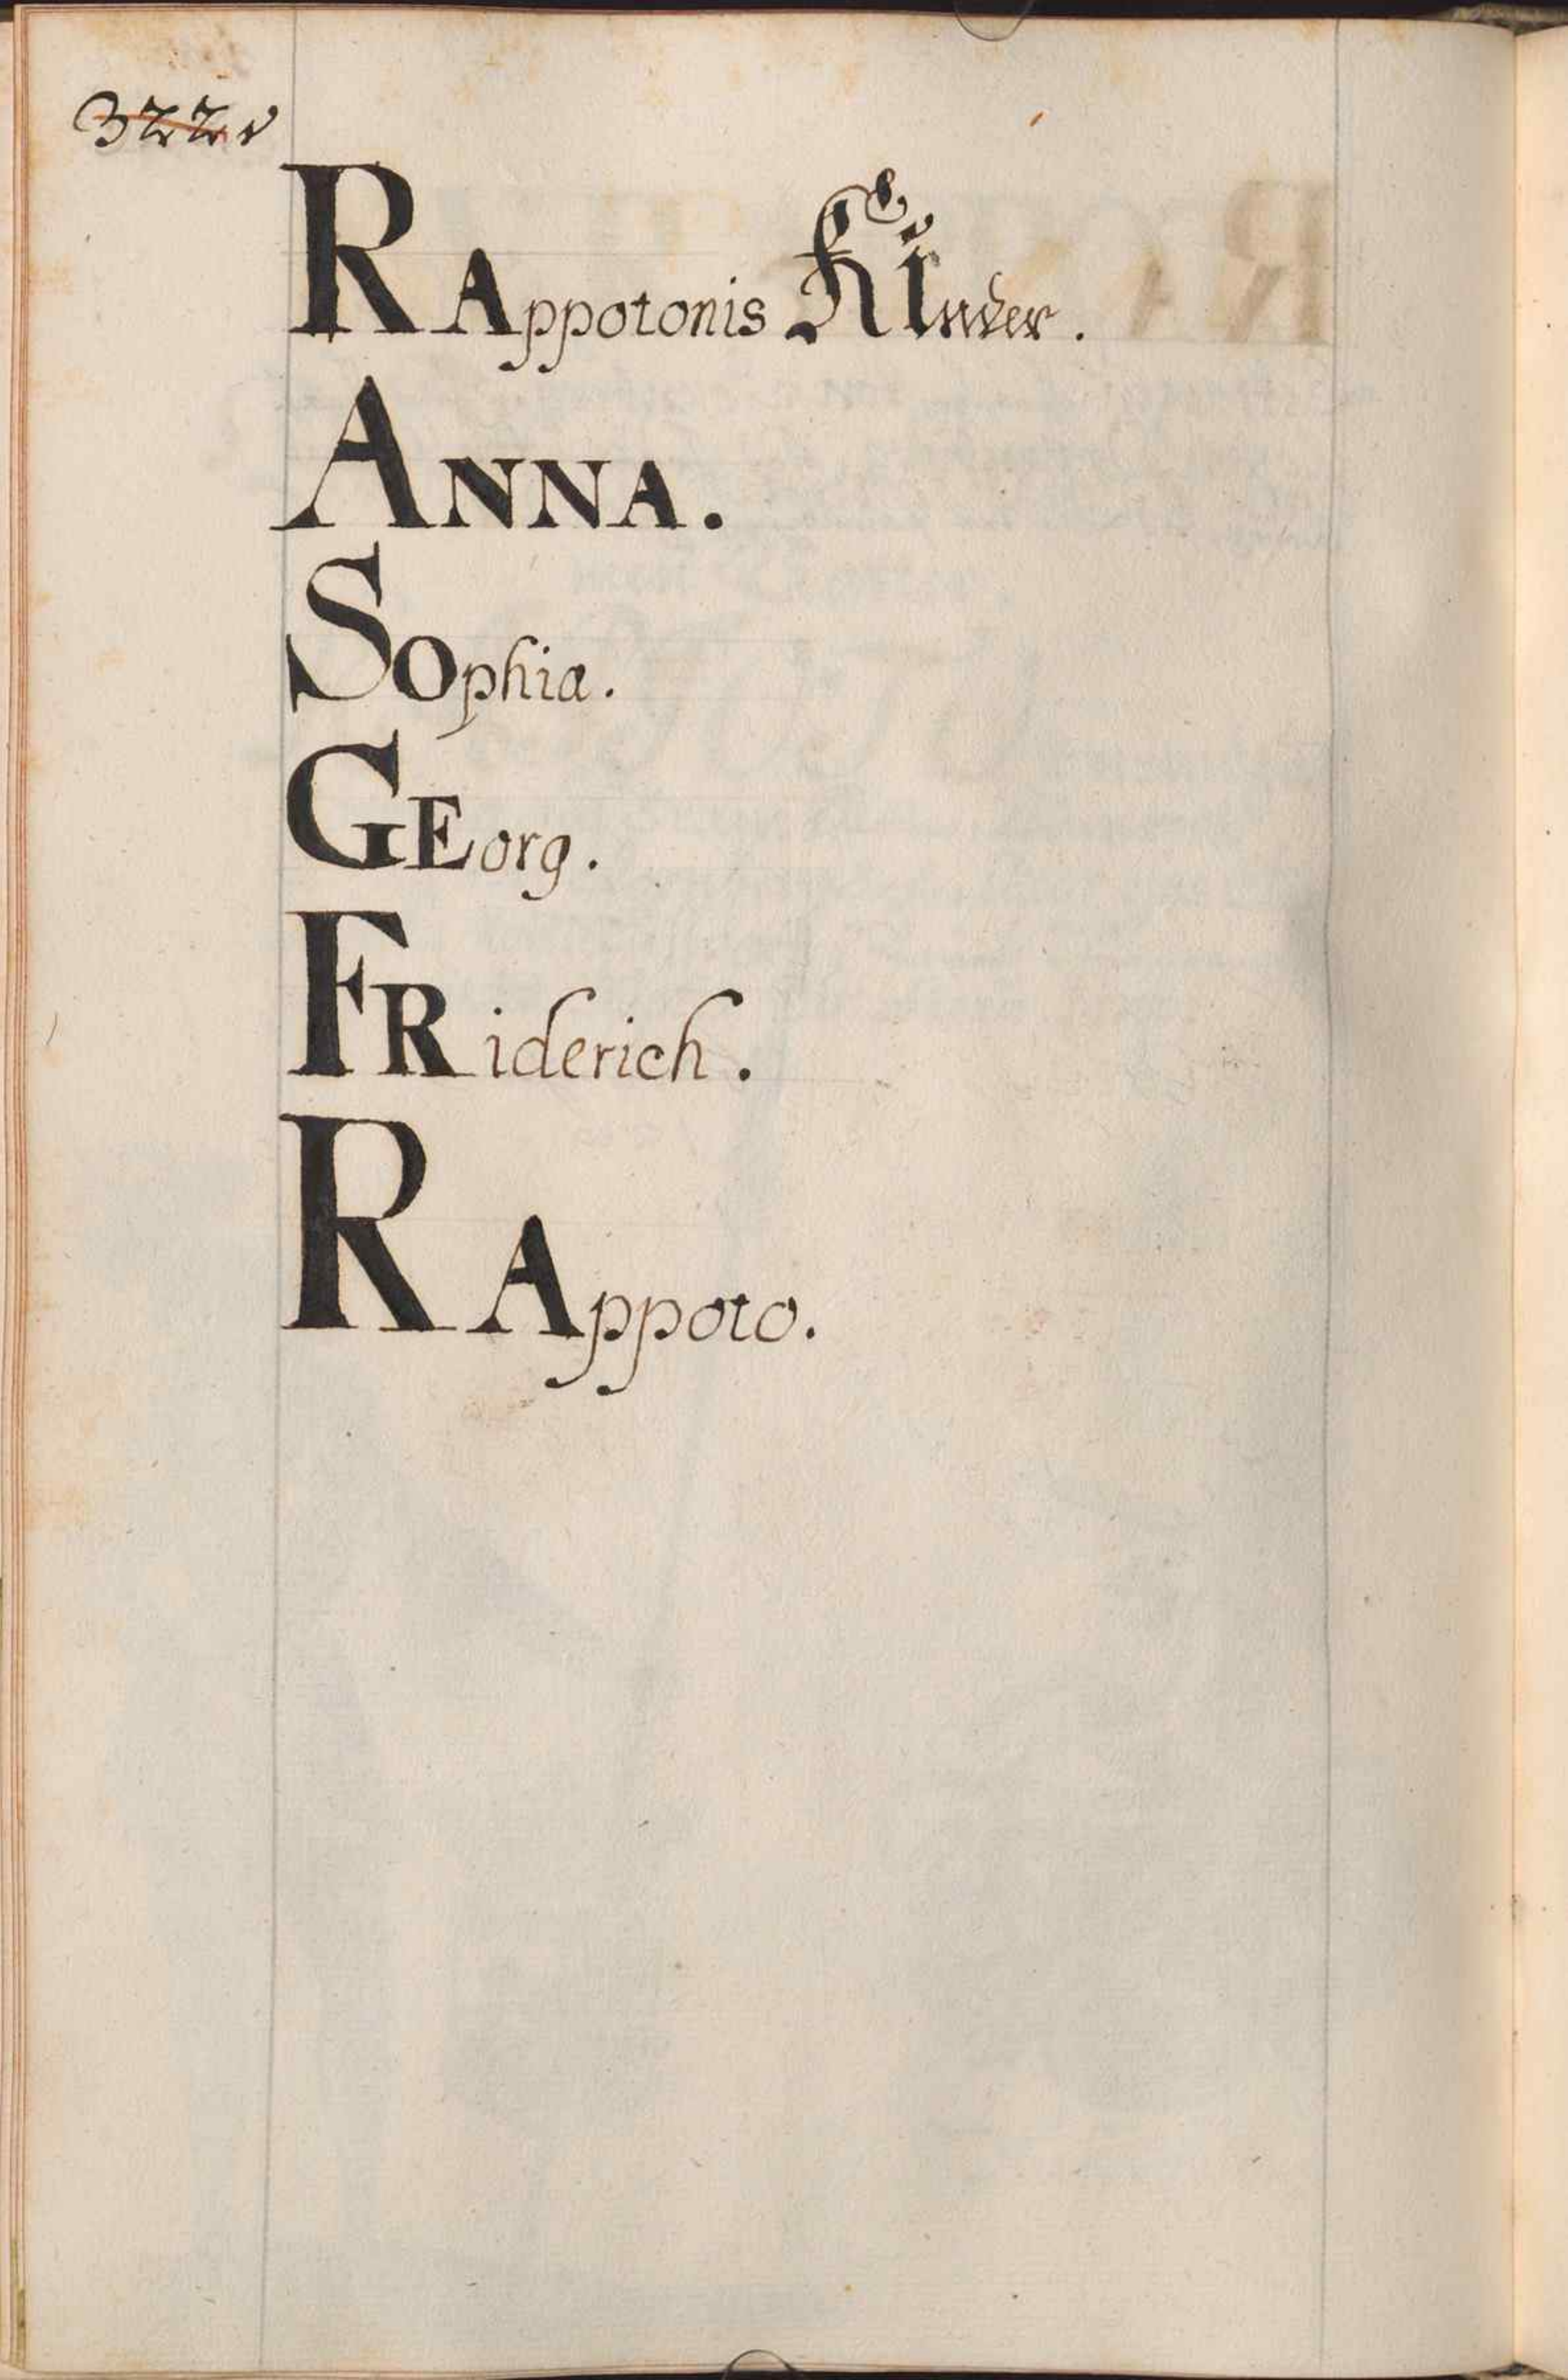 322v
RAppotonis KInder.
ANNA.
SOphia.
GEorg.
FRiderich.
RAppoto.